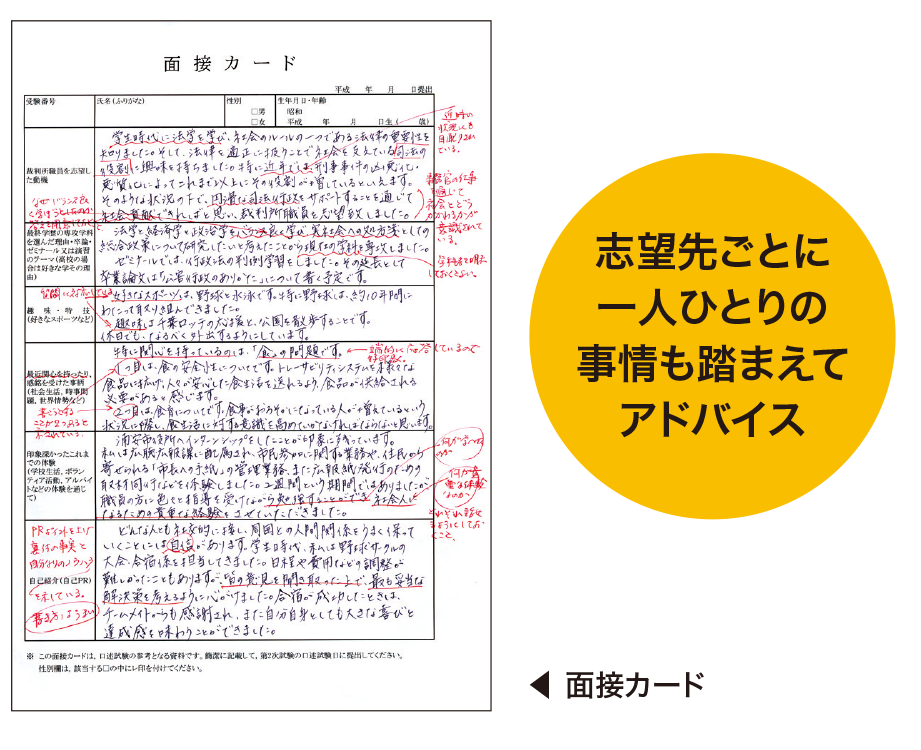 面接カード
平成　年　月　日提出
受験番号
氏名(ふりがな)
性別
□男
□女
生年月日・年齢
昭和
平成　年　月　日生(　歳)
裁判所職員を志望した動機
学生時代に法学を学び、社会のルールの一つである法律の重要性を
知りました。そして、法律を適正に扱うことで社会を支えている司法の
役割に興味を持ちました。特に近年では刑事事件の凶悪化・
悪質化によってこれまで以上にその役割が増しているといえます。
そのような状況の下で、円滑な司法行政をサポートすることを通じて
社会貢献できればと思い、裁判所職員を志望致しました。
最終学歴の専攻学科を選んだ理由・卒論・ゼミナール又は演習のテーマ(高校の場合は好きな学その理由)
法学と経済学と政治学をバランス良く学び、実社会への処方箋としての
総合政策について研究したいと考えたことから現在の学科を専攻しました。
ゼミナールでは、行政法の判例学習をしました。その延長として
卒業論文は「公害行政のあり方」について書く予定です。
趣味・特技
(好きなスポーツなど)
好きなスポーツは、野球と水泳です。特に野球は、約10年間に
わたって取り組んできました。
趣味は千葉ロッテの応援と、公園を散歩することです。
休日でも、なるべく外出するようにしています。
最近関心を持ったり、感銘を受けた事柄
(社会生活、時事問題、世界情勢など)
特に関心を持っているのは、「食」の問題です。
1つ目は、食の安全性についてです。トレーサビリティシステムを様々な
食品に拡げ、人々が安心した食生活を送れるよう、食品が供給される
必要があると感じます。
2つ目は、食育についてです。食事がおろそかになっている人が増えているという
状況に際し、食生活に対する意識を高めていかなければならないと思います。
印象深かったこれまでの体験
(学校生活、ボランティア活動、アルバイトなどの体験を通じて)
浦安市役所へインターンシップをしたことが印象に残っています。
私は広聴広報課に配属され、市民参加に関する業務や、住民から
寄せられる「市長への手紙」の管理業務、また広報紙発行のための
取材同行などを体験しました。2週間という期間ではありましたが
職員の方に色々と指導を受けながら勉強することができ、社会人に
なるための貴重な経験をさせていただきました。
自己紹介(自己PR)
どんな人とも社交的に接し、周囲との人間関係をうまく保って
いくことには自信があります。学生時代、私は野球サークルの
大会・合宿係を担当してきました。日程や費用などの調整が
難しかったこともありますが、皆の意見を聞き取った上で、最も妥当な
解決策を考えるように心がけました。合宿が成功したときは、
チームメイトからも感謝され、また自分自身としても大きな喜びと
達成感を味わうことができました。
※ この面接カードは、口述試験の参考となる資料です。簡潔に記載して、第2次試験の口述試験日に提出してください。
性別欄は、該当する□の中にレ印を付けてください。
志望先ごとに
一人ひとりの
事情も踏まえて
アドバイス
◀ 面接カード